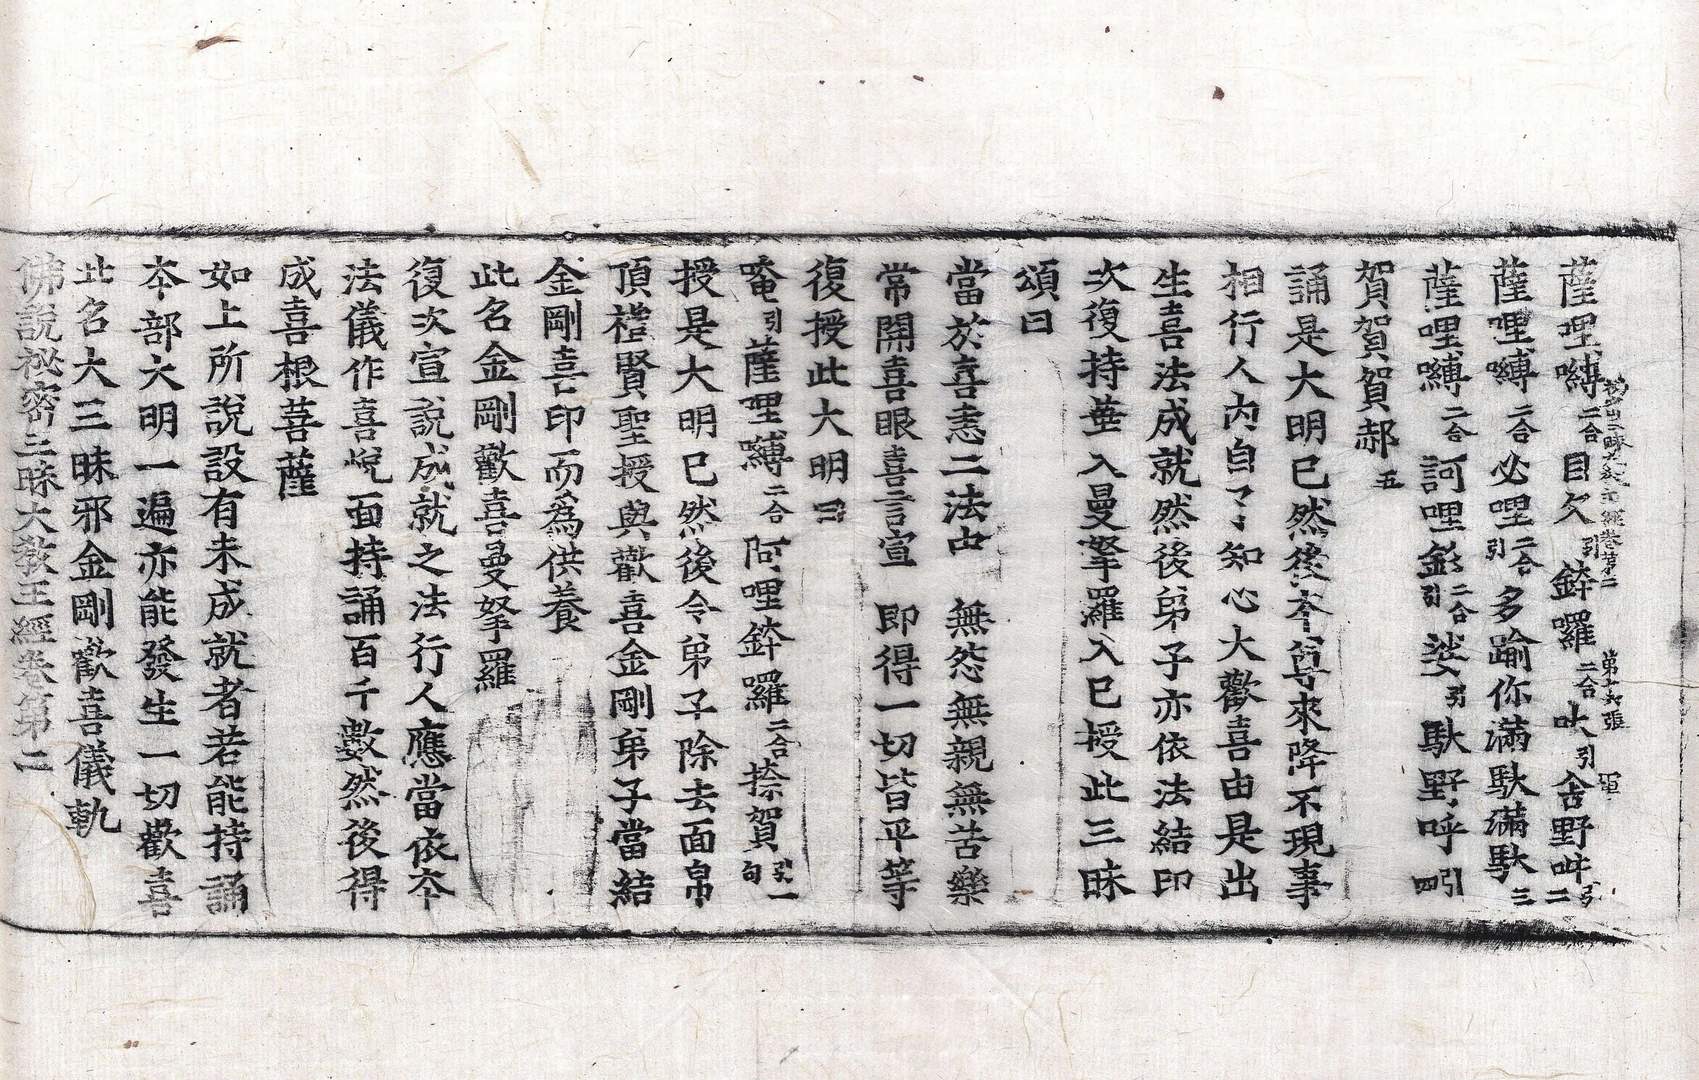 薩哩嚩二合目欠引鉾囉二合吠引舍野吽引二
薩哩嚩二合必哩二合引多踰你滿馱滿馱三
薩哩嚩二合訶哩釤引二合娑引馱野呼引四
賀賀賀郝五
誦是大明已然後夲尊來降不現事
相行人内自了知心大歡喜由是出
生喜法成就然後弟子亦依法結印
次復持華入曼拏羅入已授此三昧
頌曰
當於喜恚二法中　無怨無親無苦樂
常開喜眼喜言宣　即得一切皆平等
復授此大明曰
唵引薩哩嚩二合阿哩鉾囉二合捺賀引一句
授是大明已然後令弟子除去面帛
頂禮賢聖授與歡喜金剛弟子當結
金剛喜印而爲供養
此名金剛歡喜曼拏羅
復次宣說成就之法行人應當依夲
法儀作喜悅面持誦百千數然後得
成喜根菩薩
如上所說設有未成就者若能持誦
夲部大明一遍亦能發生一切歡喜
此名大三昧邪金剛歡喜儀軌
佛説祕密三昧大教王經卷第二